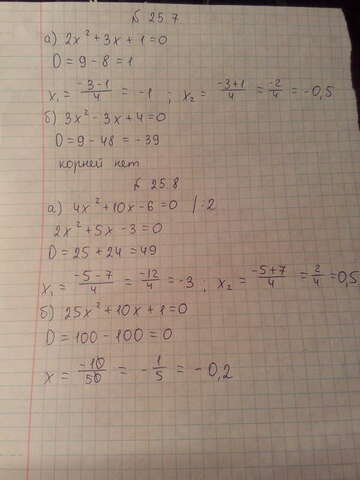 № 25.7
а) 2x² + 3x + 1 = 0
D = 9 - 8 = 1
x₁ = (-3-1)/4 = -1 ; x₂ = (-3+1)/4 = -2/4 = -0,5
б) 3x² - 3x + 4 = 0
D = 9 - 48 = -39
корней нет
№ 25.8
а) 4x² + 10x - 6 = 0 | :2
2x² + 5x - 3 = 0
D = 25 + 24 = 49
x₁ = (-5-7)/4 = -12/4 = -3 , x₂ = (-5+7)/4 = 2/4 = 0,5
б) 25x² + 10x + 1 = 0
D = 100 - 100 = 0
x = -10/50 = -1/5 = -0,2